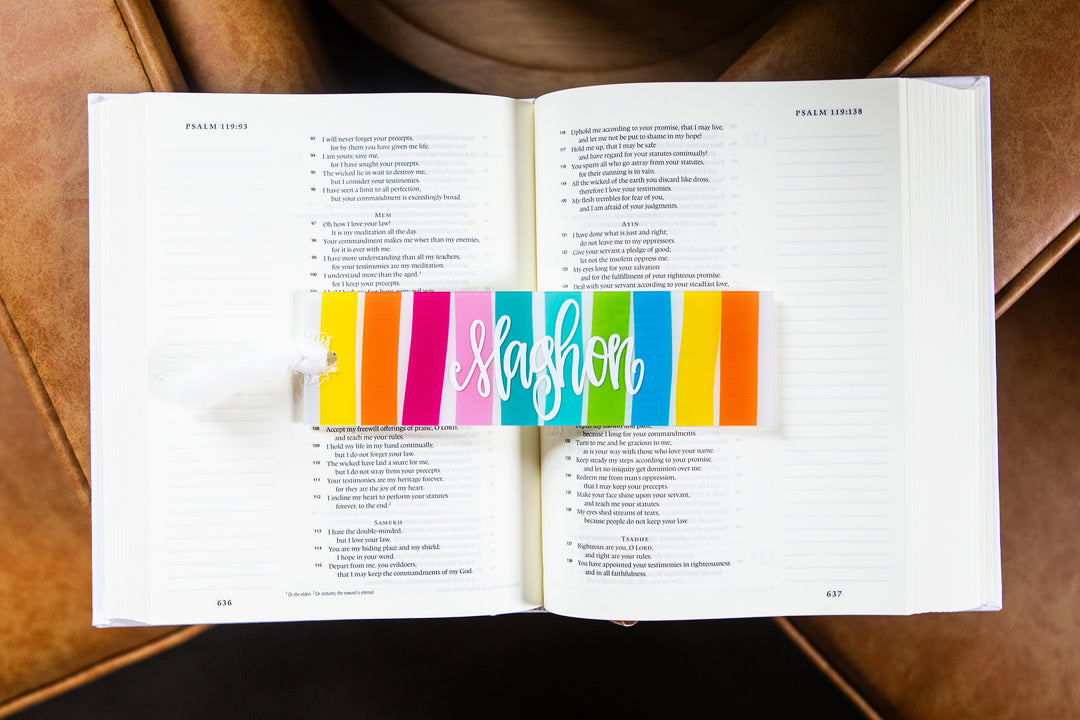 PSALM 119:93
93 I will never forget your precepts,
for by them you have given me life.
94 I am yours; save me,
for I have sought your precepts.
95 The wicked lie in wait to destroy me,
but I consider your testimonies.
96 I have seen a limit to all perfection,
but your commandment is exceedingly broad.
MEM
97 Oh how I love your law!
It is my meditation all the day.
98 Your commandment makes me wiser than my enemies,
for it is ever with me.
99 I have more understanding than all my teachers,
for your testimonies are my meditation.
100 I understand more than the aged,1
for I keep your precepts.
108 Accept my freewill offerings of praise, O LORD,
and teach me your rules.
109 I hold my life in my hand continually,
but I do not forget your law.
110 The wicked have laid a snare for me,
but I do not stray from your precepts.
111 Your testimonies are my heritage forever,
for they are the joy of my heart.
112 I incline my heart to perform your statutes
forever, to the end.2
SAMEKH
113 I hate the double-minded,
but I love your law.
114 You are my hiding place and my shield;
I hope in your word.
115 Depart from me, you evildoers,
that I may keep the commandments of my God.
1 Or the elders 2 Or statutes; the reward is eternal
636
Maghon
PSALM 119:138
116 Uphold me according to your promise, that I may live,
and let me not be put to shame in my hope!
117 Hold me up, that I may be safe
and have regard for your statutes continually!
118 You spurn all who go astray from your statutes,
for their cunning is in vain.
119 All the wicked of the earth you discard like dross,
therefore I love your testimonies.
120 My flesh trembles for fear of you,
and I am afraid of your judgments.
AYIN
121 I have done what is just and right;
do not leave me to my oppressors.
122 Give your servant a pledge of good;
let not the insolent oppress me.
123 My eyes long for your salvation
and for the fulfillment of your righteous promise.
124 Deal with your servant according to your steadfast love,
because I long for your commandments.
132 Turn to me and be gracious to me,
as is your way with those who love your name.
133 Keep steady my steps according to your promise,
and let no iniquity get dominion over me.
134 Redeem me from man's oppression,
that I may keep your precepts.
135 Make your face shine upon your servant,
and teach me your statutes.
136 My eyes shed streams of tears,
because people do not keep your law.
TSADHE
137 Righteous are you, O LORD,
and right are your rules.
138 You have appointed your testimonies in righteousness
and in all faithfulness.
637